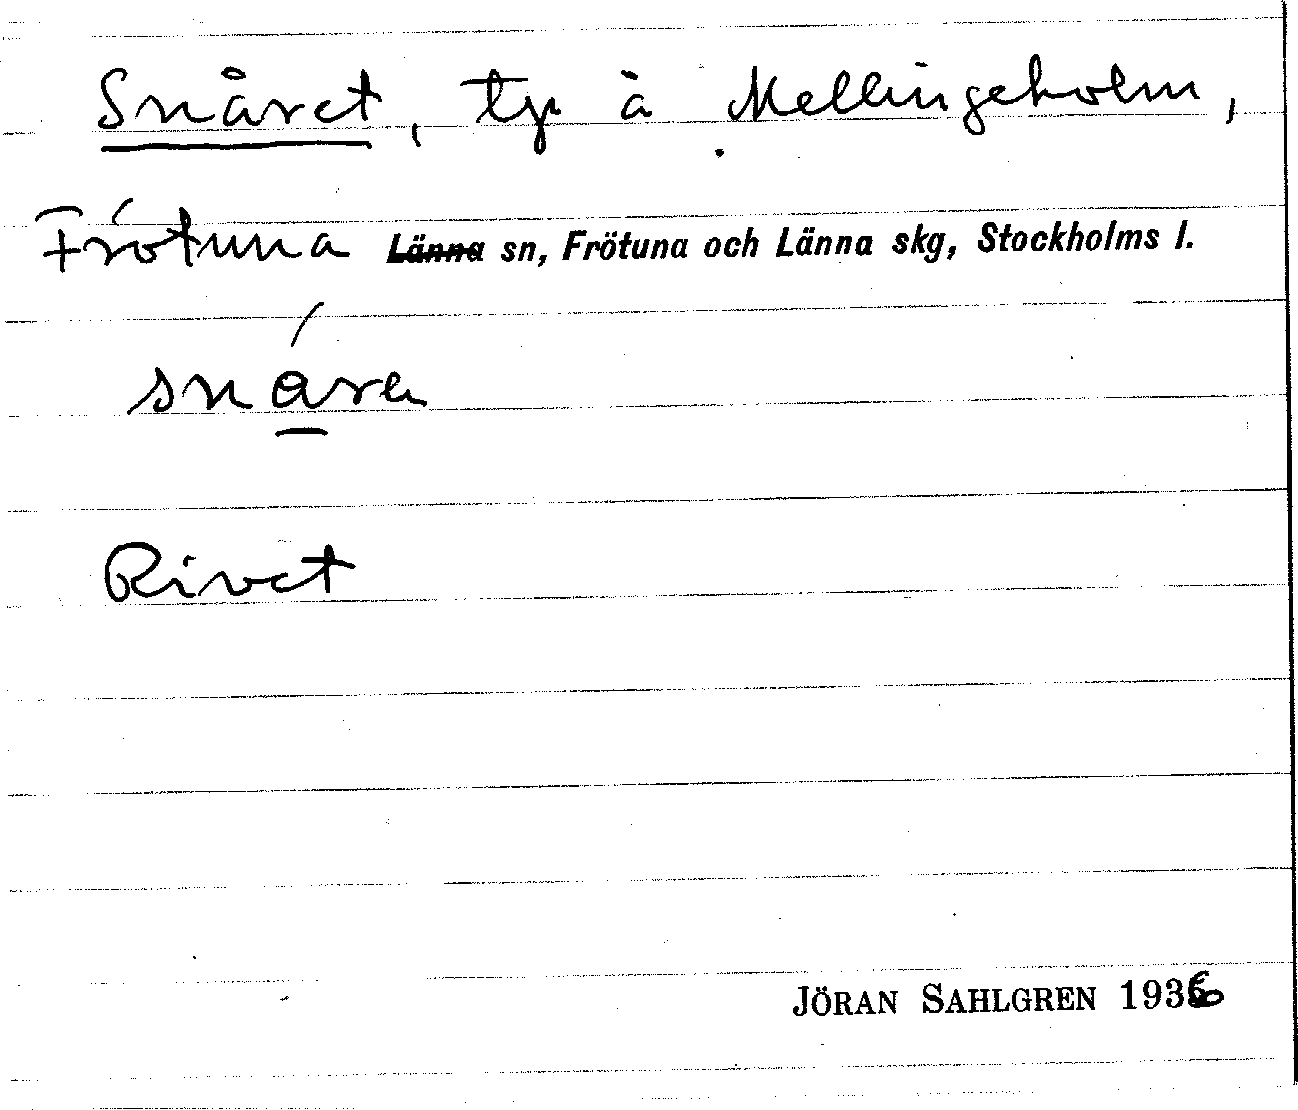 Snåret, tp å Mellingeholm,
Frötuna Länna sn, Frötuna och Länna skg, Stockholms l.
snåre
Rivet
JÖRAN SAHLGREN 1936